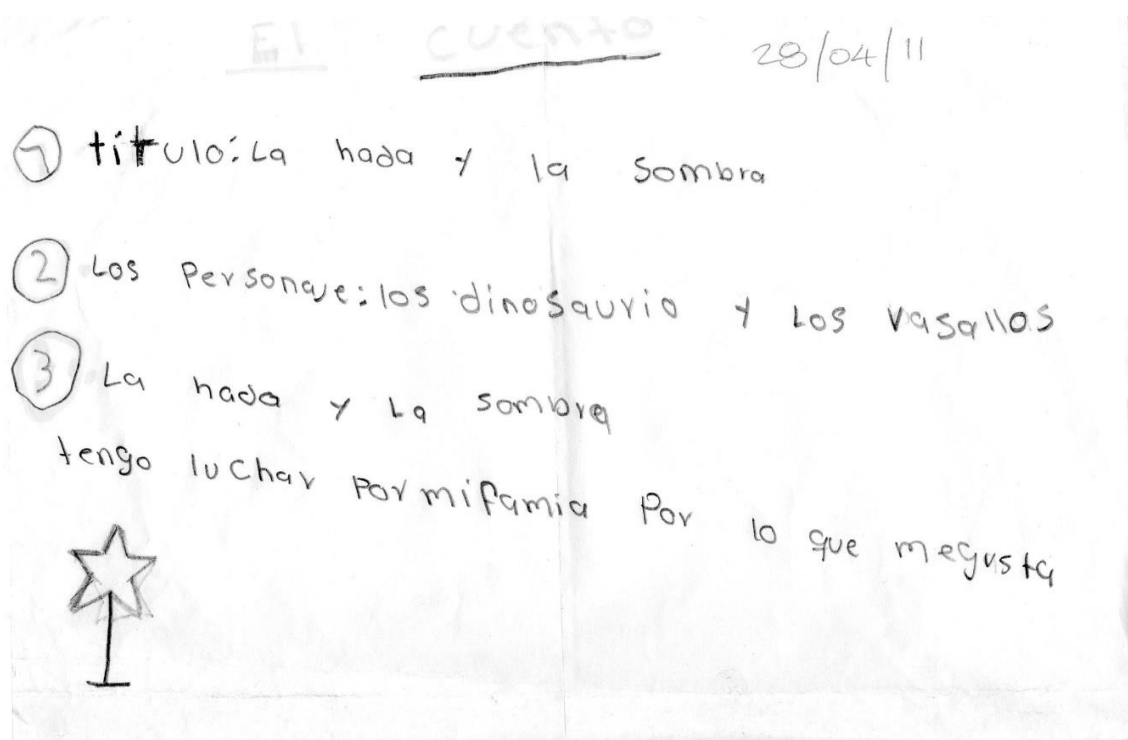 El cuento 28/04/11
1 título: La hada y la sombra
2 Los Personaje: los dinosaurio y Los vasallos
3 La hada y La sombra
tengo luchar Por mifamia Por lo que megusta